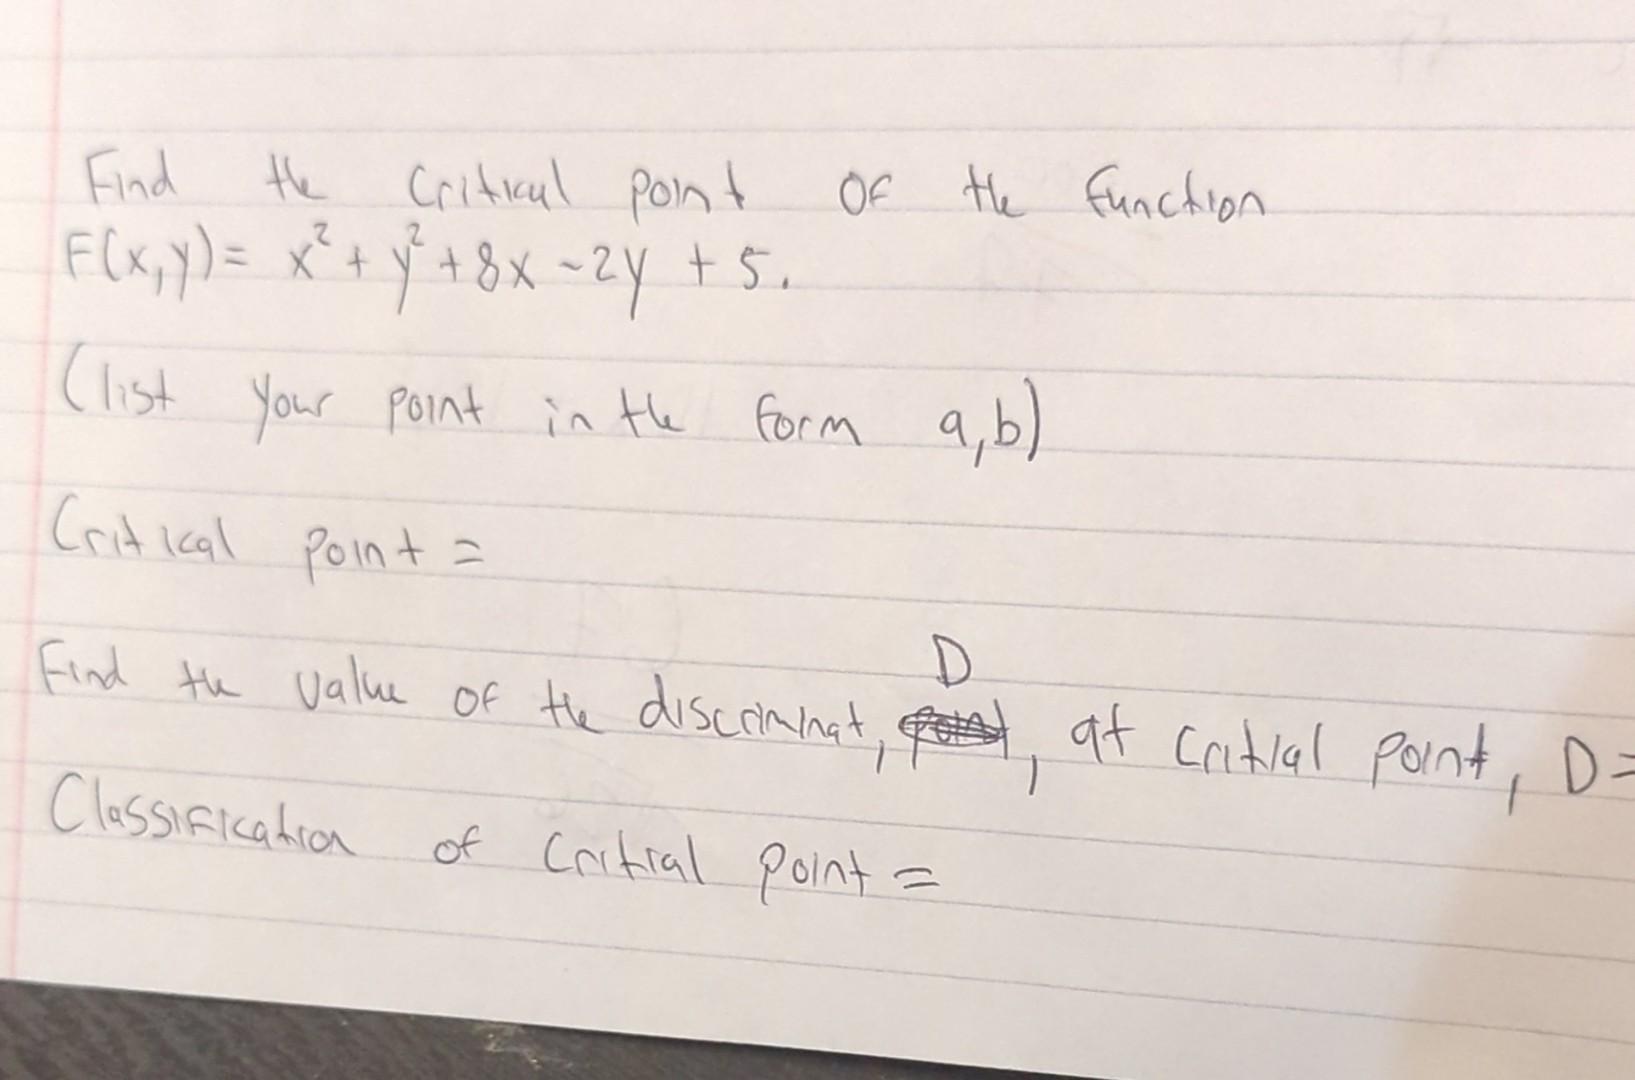 Find the critical point of the function
F(x,y) = x² + y² + 8x - 2y + 5.
(list your point in the form a,b)
Critical point =
Find the value of the discriminat, D, at critial point, D=
Classification of critial point =